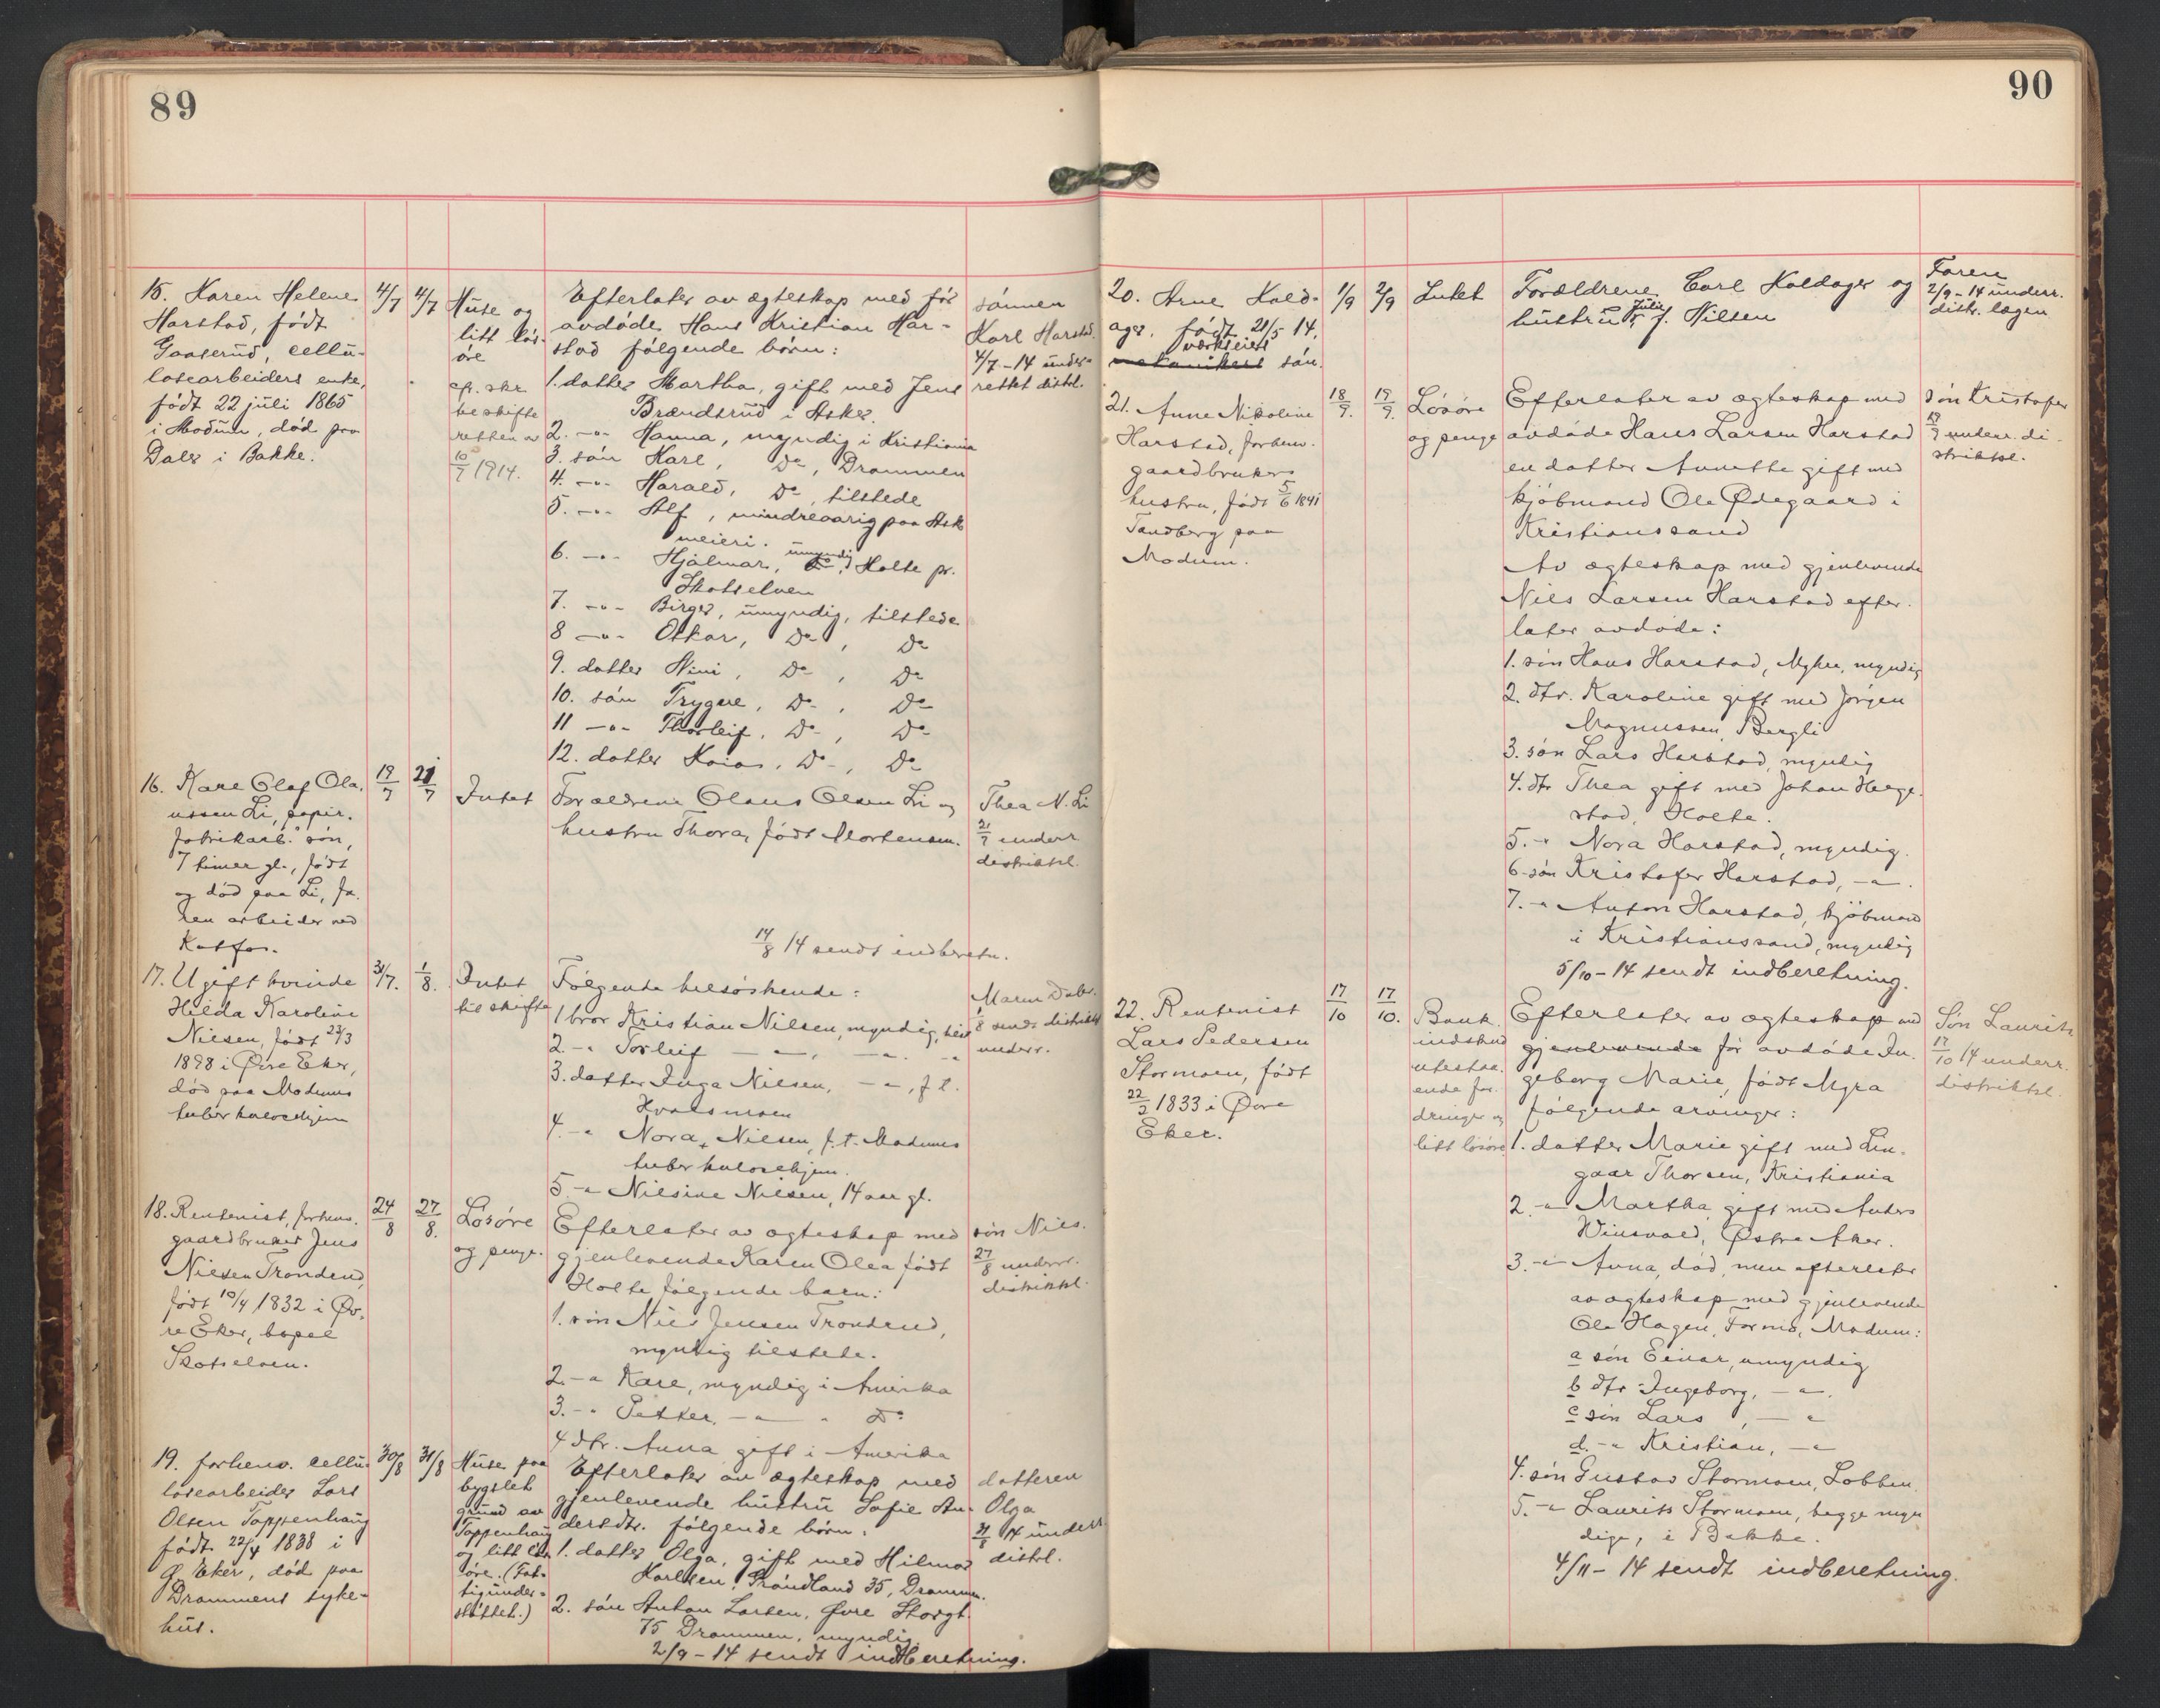 89
15. Karen Helene
Harstad, født
Gaaserud, cellu-
losearbeiders enke,
født 22 juli 1865
i Modum, død paa
Daler i Bakke.
4/7
4/7
Huse og
litt løs-
øre
beskifte
retten av
10/7 1914.
Efterlater av ægteskap med før
avdøde Hans Kristian Har-
stad følgende børn:
1. datter Martha, gift med Jens
Brændsrud i Asker.
2. -"- Hanna, myndig i Kristiania
3. søn Karl, Do, Drammen
4. -"- Harald, Do, tilstede
5. -"- Alf, mindreaarig paa Ask
meieri.
6. -"- Hjalmar, umyndig, Holte pr.
Skotselven
7. -"- Birger, umyndig, tilstede
8 -"- Ottar, Do, Do
9. datter Nini, Do, Do
10. søn Trygve, Do, Do
11 -"- Thorleif, Do, Do
12. datter Kaia, Do, Do
sønnen
Karl Harstad.
4/7-14 under-
rettet distrl.
16. Karl Olaf Ola-
ussen Li, papir-
fabrikarb. søn,
7 timer gl., født
og død paa Li, fa-
ren arbeider ved
Katfos.
19/7
21/7
Intet
Forældrene Olaus Olsen Li og
hustru Thora, født Mortensen.
Thea N. Li
21/7 underr
distriktsl.
14/8 14 sendt indberetn.
17. Ugift kvinde
Hilda Karoline
Nilsen, født 23/3
1898 i Øvre Eker,
død paa Modums
tuberkulosehjem
31/7.
1/8.
Intet
til skifte
Følgende helsøskende:
1 bror Kristian Nilsen, myndig,
2.-" Torleif -"-, -"-. -"
3. datter Inga Nilsen, -"-, f.t.
Hvalsmoen
4.-" Nora Nilsen, f.t. Modums
tuberkulosehjem.
5-" Nilsine Nilsen, 14 aar gl.
1/8 sendt distriktsl
underr.
18. Rentenist, forhenv.
gaardbruker Jens
Nilsen Trondrud,
født 10/4 1832 i Øv-
re Eker, bopæl
Skotselven.
24/8
27/8.
Løsøre
og penge.
Efterlater av ægteskap med
gjenlevende Karen Olea født
Holte følgende barn:
1. søn Nils Jensen Trondrud,
myndig tilstede.
2.-" Karl, myndig i Amerika
3.-" Petter, -"- " Do
4 dtr. Anna gift i Amerika
søn Nils.
27/8 underr.
distriktsl.
19. forhenv. cellu-
losearbeider Lars
Olsen Toppenhaug
født 22/4 1838 i
Ø. Eker, død paa
Drammens syke-
hus.
30/8
31/8
Huse paa
bygslet
grund av
Toppenhaug
og litt løs-
øre. (Fat-
tigunder-
støttet.)
Efterlater av ægteskap med
gjenlevende hustru Sofie An-
dersdtr. følgende børn:
1. datter Olga, gift med Hilmar
Karlsen, Grønland 35, Drammen.
2. søn Anton Larsen, Øvre Storgt.
75 Drammen, myndig.
2/9-14 sendt indberetning.
datteren
Olga
31/8 14 underr
distrl.
90
20. Arne Kold-
ager, født 21/5 14,
værkseiers
mekanikers søn.
1/9
2/9
Intet
Forældrene Carl Koldager og
hustru Julie f. Nilsen
Faren
2/9-14 underr.
distr. lagen
21. Anne Nikoline
Harstad, forhenv.
gaardbrukers
hustru, født 5/6 1841
Tandberg paa
Modum.
18/9.
19/9.
Løsøre
og penge
Efterlater av ægteskap med
avdøde Hans Larsen Harstad
en datter Annette gift med
kjøbmand Ole Ødegaard i
Kristianssand
Av ægteskap med gjenlevende
Nils Larsen Harstad efter-
later avdøde:
1. søn Hans Harstad, Myhre, myndig
2. dtr. Karoline gift med Jørgen
Magnussen, Bergli
3. søn Lars Harstad, myndig
4. dtr Thea gift med Johan Hærge-
stad, Holte.
5.-" Nora Harstad, myndig.
6-søn Kristofer Harstad, -"-.
7.-" Anton Harstad, kjøbmand
i Kristianssand, myndig
5/10-14 sendt indberetning.
søn Kristofer
19/9 underr. di-
striktsl.
22. Rentenist
Lars Pedersen
Stormoen, født
22/2 1833 i Øvre
Eker.
17/10
17/10.
Bank-
indskud
utestaa-
ende for-
dringer og
litt løsøre
Efterlater av ægteskap med
gjenlevende før avdøde In-
geborg Marie, født Myra
følgende arvinger:
1. datter Marie gift med Lin-
gaar Thorsen, Kristiania
2.-" Martha gift med Anders
Winsvold, Østre Aker.
3.-" Anna, død, men efterlater
av ægteskap med gjenlevende
Ole Hagen, Formo, Modum:
a søn Einar, umyndig
b dtr Ingeborg, -"-.
c søn Lars, -"-
d.-" Kristian, -"-
4. søn Gustav Stormoen, Lobben.
5.-" Laurits Stormoen, begge myn
dige, i Bakke.
4/11-14 sendt indberetning.
Søn Laurits
17/10 14 underr.
distriktsl.